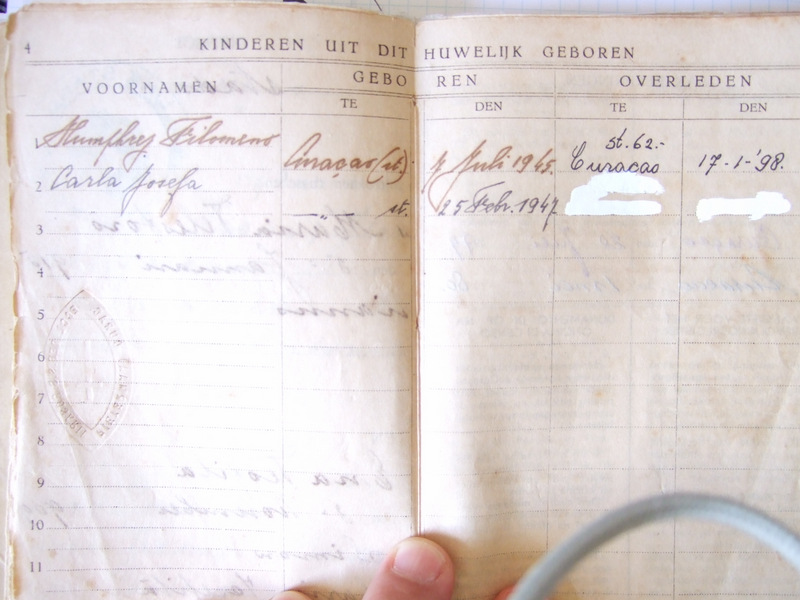 4
KINDEREN UIT DIT HUWELIJK GEBOREN
VOORNAMEN
GEBOREN
OVERLEDEN
TE
DEN
TE
DEN
1 Humphrey Filomeno Curaçao (st. Juli 1945. st. 62.- Curacao 17-1-'98.
2 Carla Josefa st. 25 Febr. 1947
3
4
5
6
7
8
9
10
11